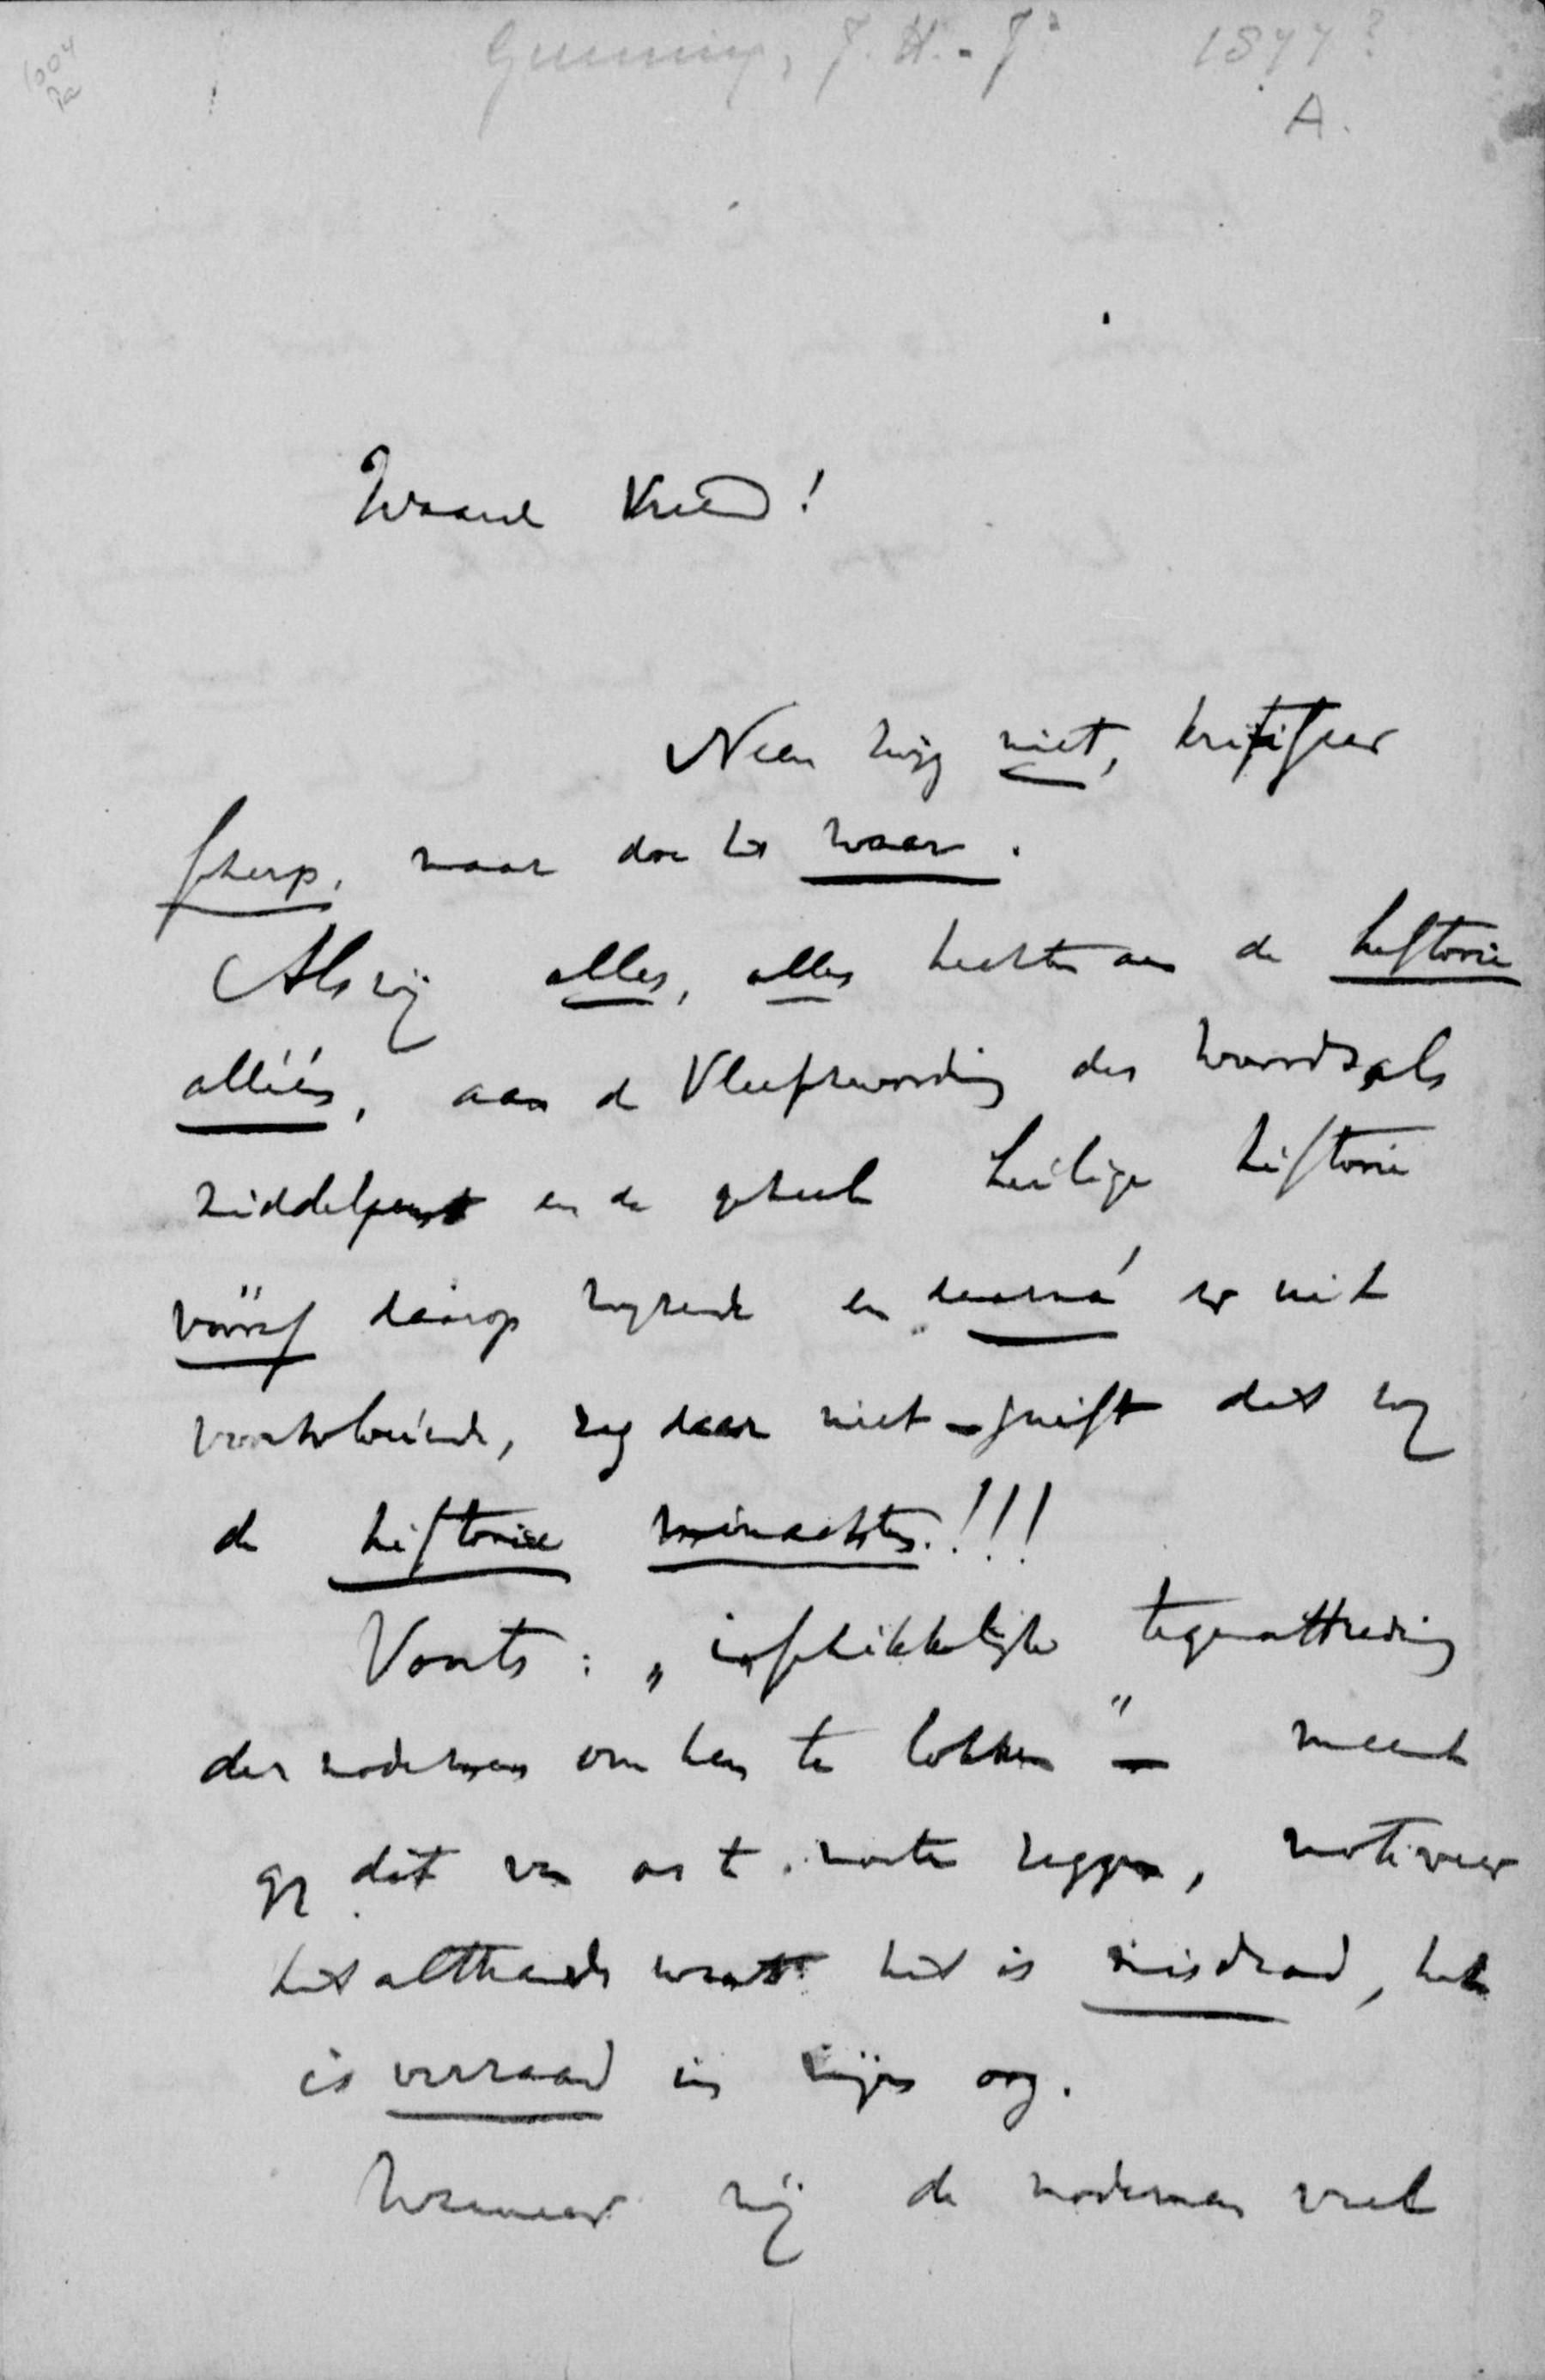 Gunning, J. H. - Jr 1877?
A.
Waarde Vriend!
Neen zwijg niet, kritiseer
scherp, maar doe het waar.
Als wij alles, alles hechten aan de historie
alléén, aan de Vleeschwording des Woords als
middelpunt en de geheele heilige historie
vóóraf daarop en daarná er uit
voortvloeiende, zeg daar niet - juist dat wij
de historie minachten!!!
Voorts: „inschikkelijke tegemoettreding
der modernen om hen te lokken" — meent
gij dit van ons te moeten zeggen, motiveer
het althands want het is misdaad, het
is verraad in mijn oog.
Wanneer wij de modernen veel